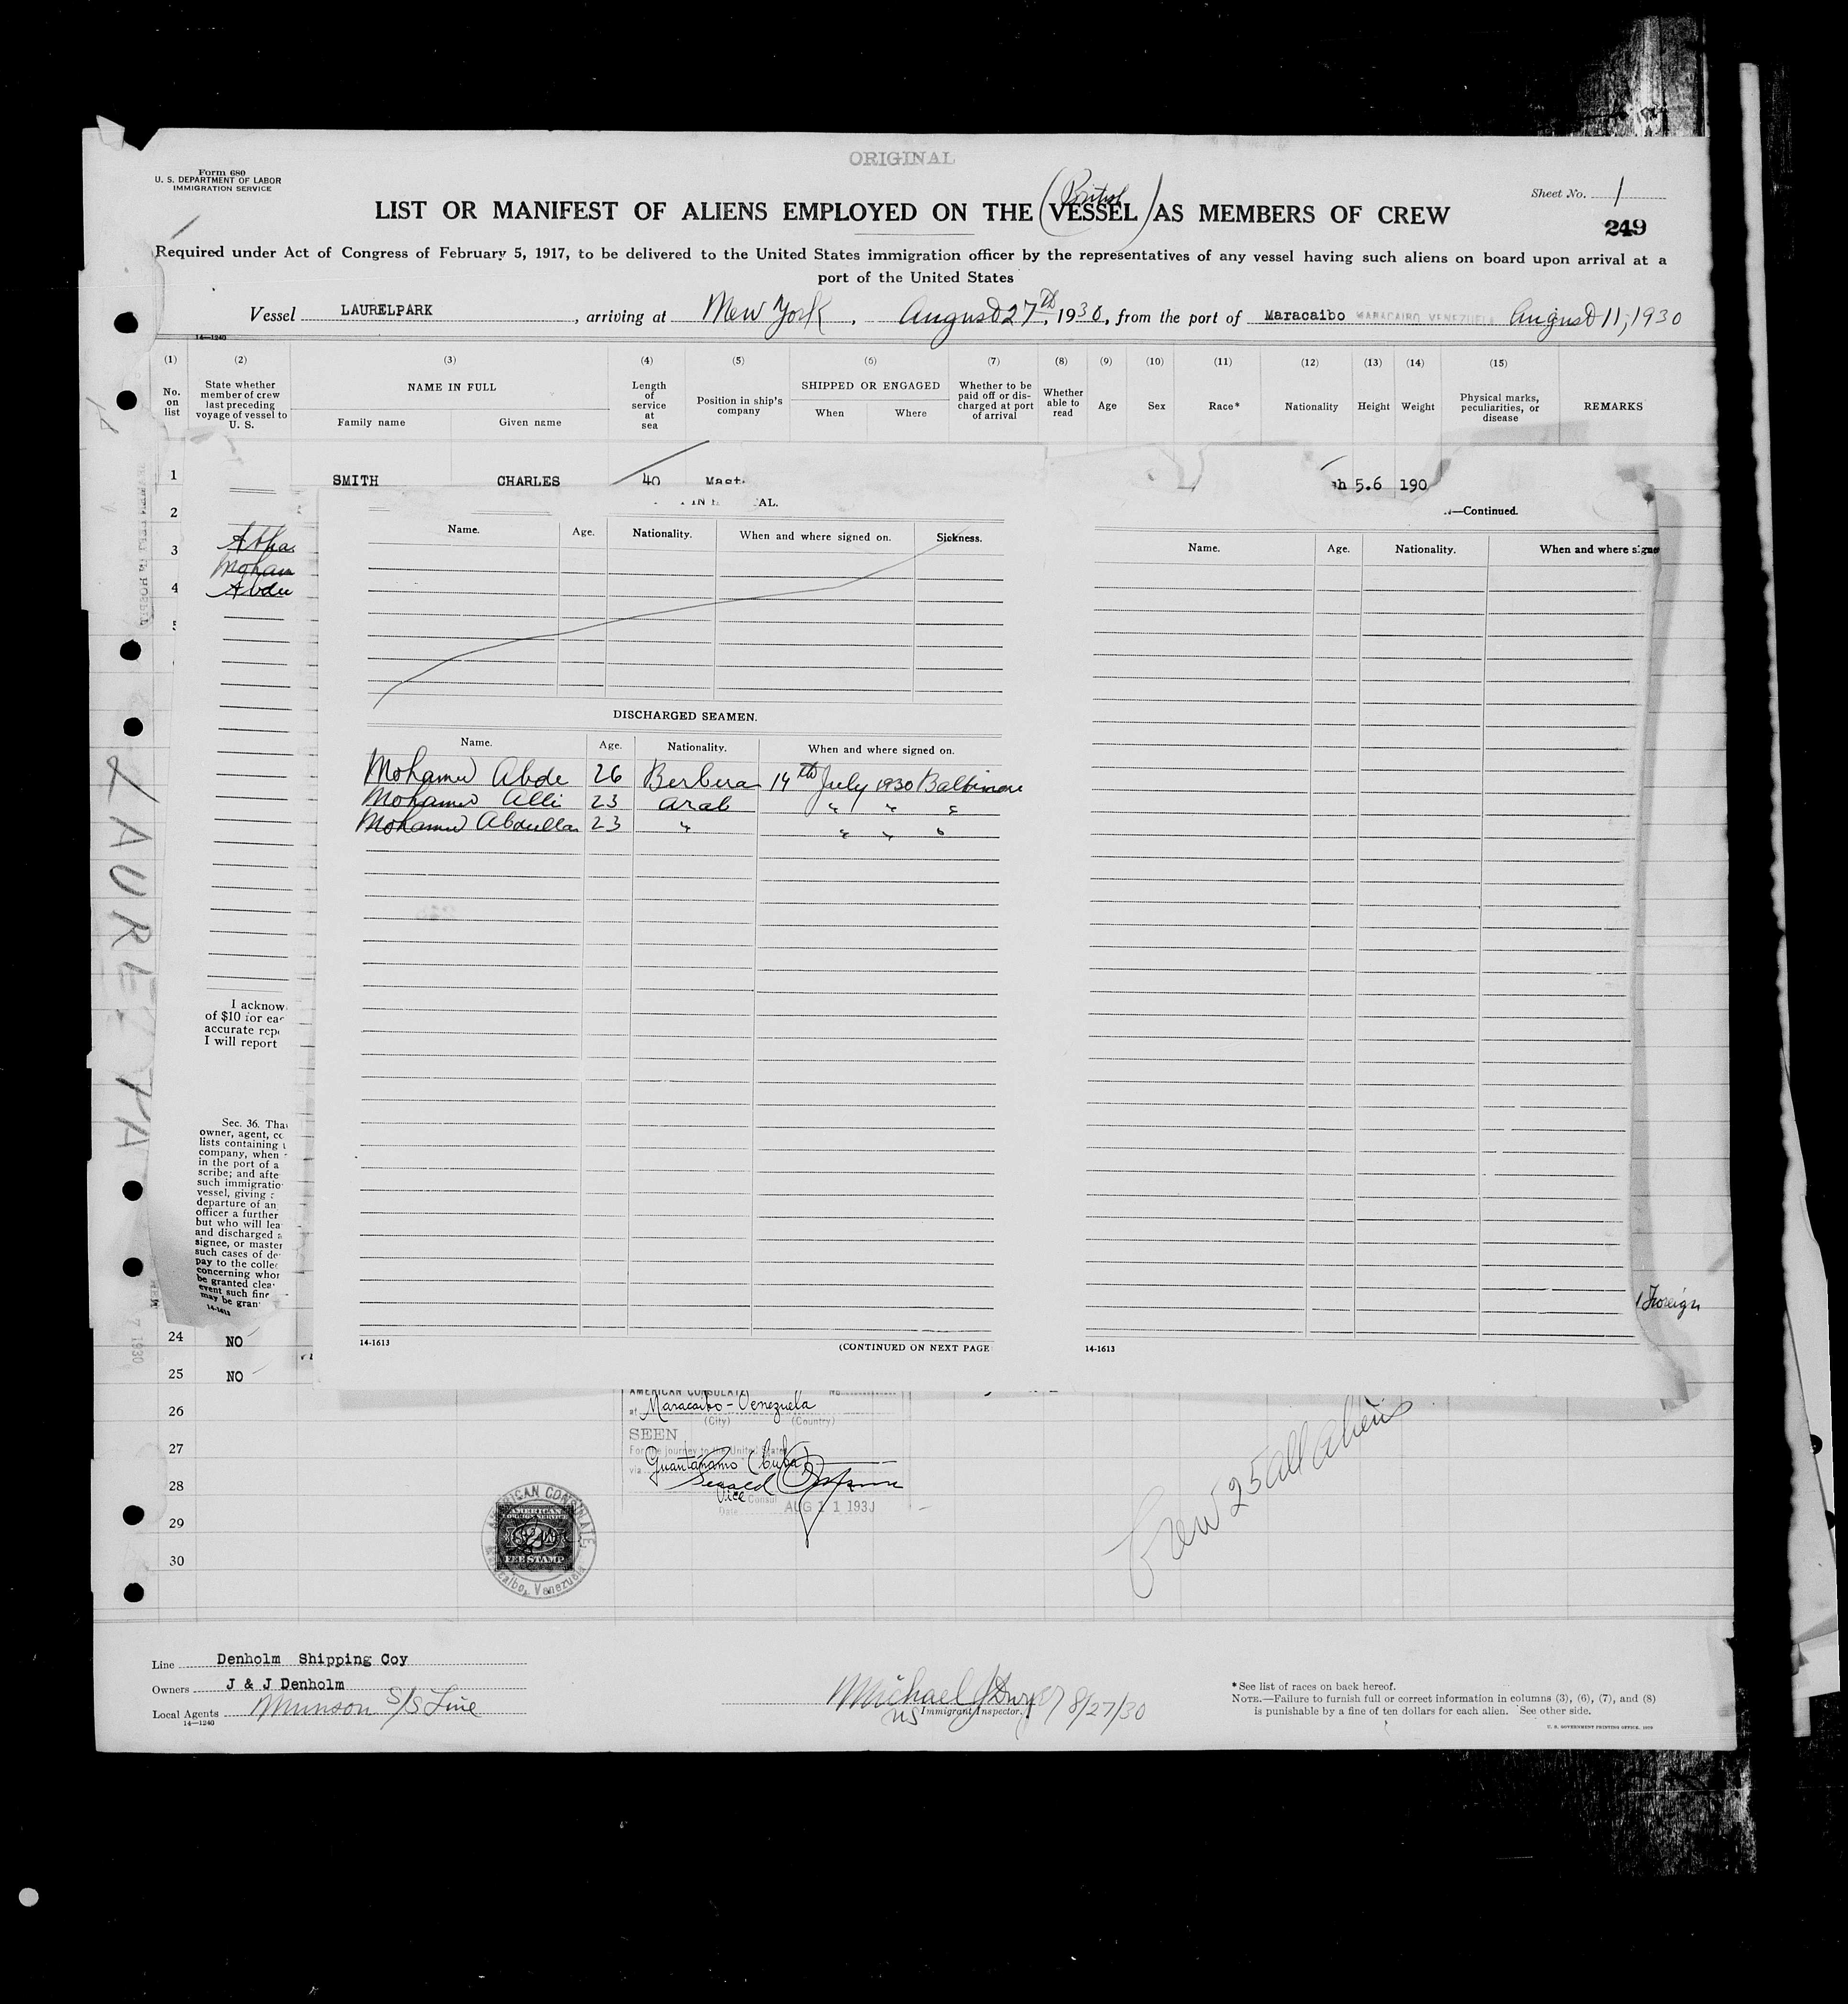 ORIGINAL
Form 680
U. S. DEPARTMENT OF LABOR
IMMIGRATION SERVICE
Sheet No. 1
249
LIST OR MANIFEST OF ALIENS EMPLOYED ON THE (British VESSEL) AS MEMBERS OF CREW
Required under Act of Congress of February 5, 1917, to be delivered to the United States immigration officer by the representatives of any vessel having such aliens on board upon arrival at a
port of the United States
Vessel LAURELPARK, arriving at New York, August 27th, 1930, from the port of Maracaibo MARACAIBO VENEZUELA August 11, 1930
14—1240
(1) (2) (3) (4) (5) (6) (7) (8) (9) (10) (11) (12) (13) (14) (15)
No. on list
State whether member of crew last preceding voyage of vessel to U. S.
NAME IN FULL
Family name
Given name
Length of service at sea
Position in ship's company
SHIPPED OR ENGAGED
When
Where
Whether to be paid off or discharged at port of arrival
Whether able to read
Age
Sex
Race*
Nationality
Height
Weight
Physical marks, peculiarities, or disease
REMARKS
1 SMITH CHARLES 40 Mast 5.6 190
2
3
4
Name. Age. Nationality. When and where signed on. Sickness.
DISCHARGED SEAMEN.
Name. Age. Nationality. When and where signed on.
Mohamed Abde 26 Berbera 14th July 1930 Baltimore
Mohamed Alli 23 Arab " " "
Mohamed Abdulla 23 " " " "
14-1613
(CONTINUED ON NEXT PAGE
—Continued.
Name. Age. Nationality. When and where signe
14-1613
1 Foreign
LAURELPA
I acknow
of $10 for eac
accurate repo
I will report
Sec. 36. Tha
owner, agent, co
lists containing
company, when
in the port of a
scribe; and afte
such immigratio
vessel, giving
departure of an
officer a further
but who will lea
and discharged
signee, or master
such cases of de
pay to the collec
concerning whor
be granted clea
event such fine
may be gran
14-1613
24 NO
25 NO
26
27
28
29
30
AMERICAN CONSULATE No.
at Maracaibo - Venezuela
(City) (Country)
SEEN
For the journey to the United States
via Guantanamo (Cuba)
Vice Consul
Date AUG 11 1930
AMERICAN CONSULATE
Maracaibo, Venezuela
AMERICAN
FOREIGN SERVICE
FEE STAMP
Crew 25 all aliens
Line Denholm Shipping Coy
Owners J & J Denholm
Local Agents Munson S/S Line
14—1240
Michael J Dwyer 8/27/30
US Immigrant Inspector.
* See list of races on back hereof.
NOTE.—Failure to furnish full or correct information in columns (3), (6), (7), and (8)
is punishable by a fine of ten dollars for each alien. See other side.